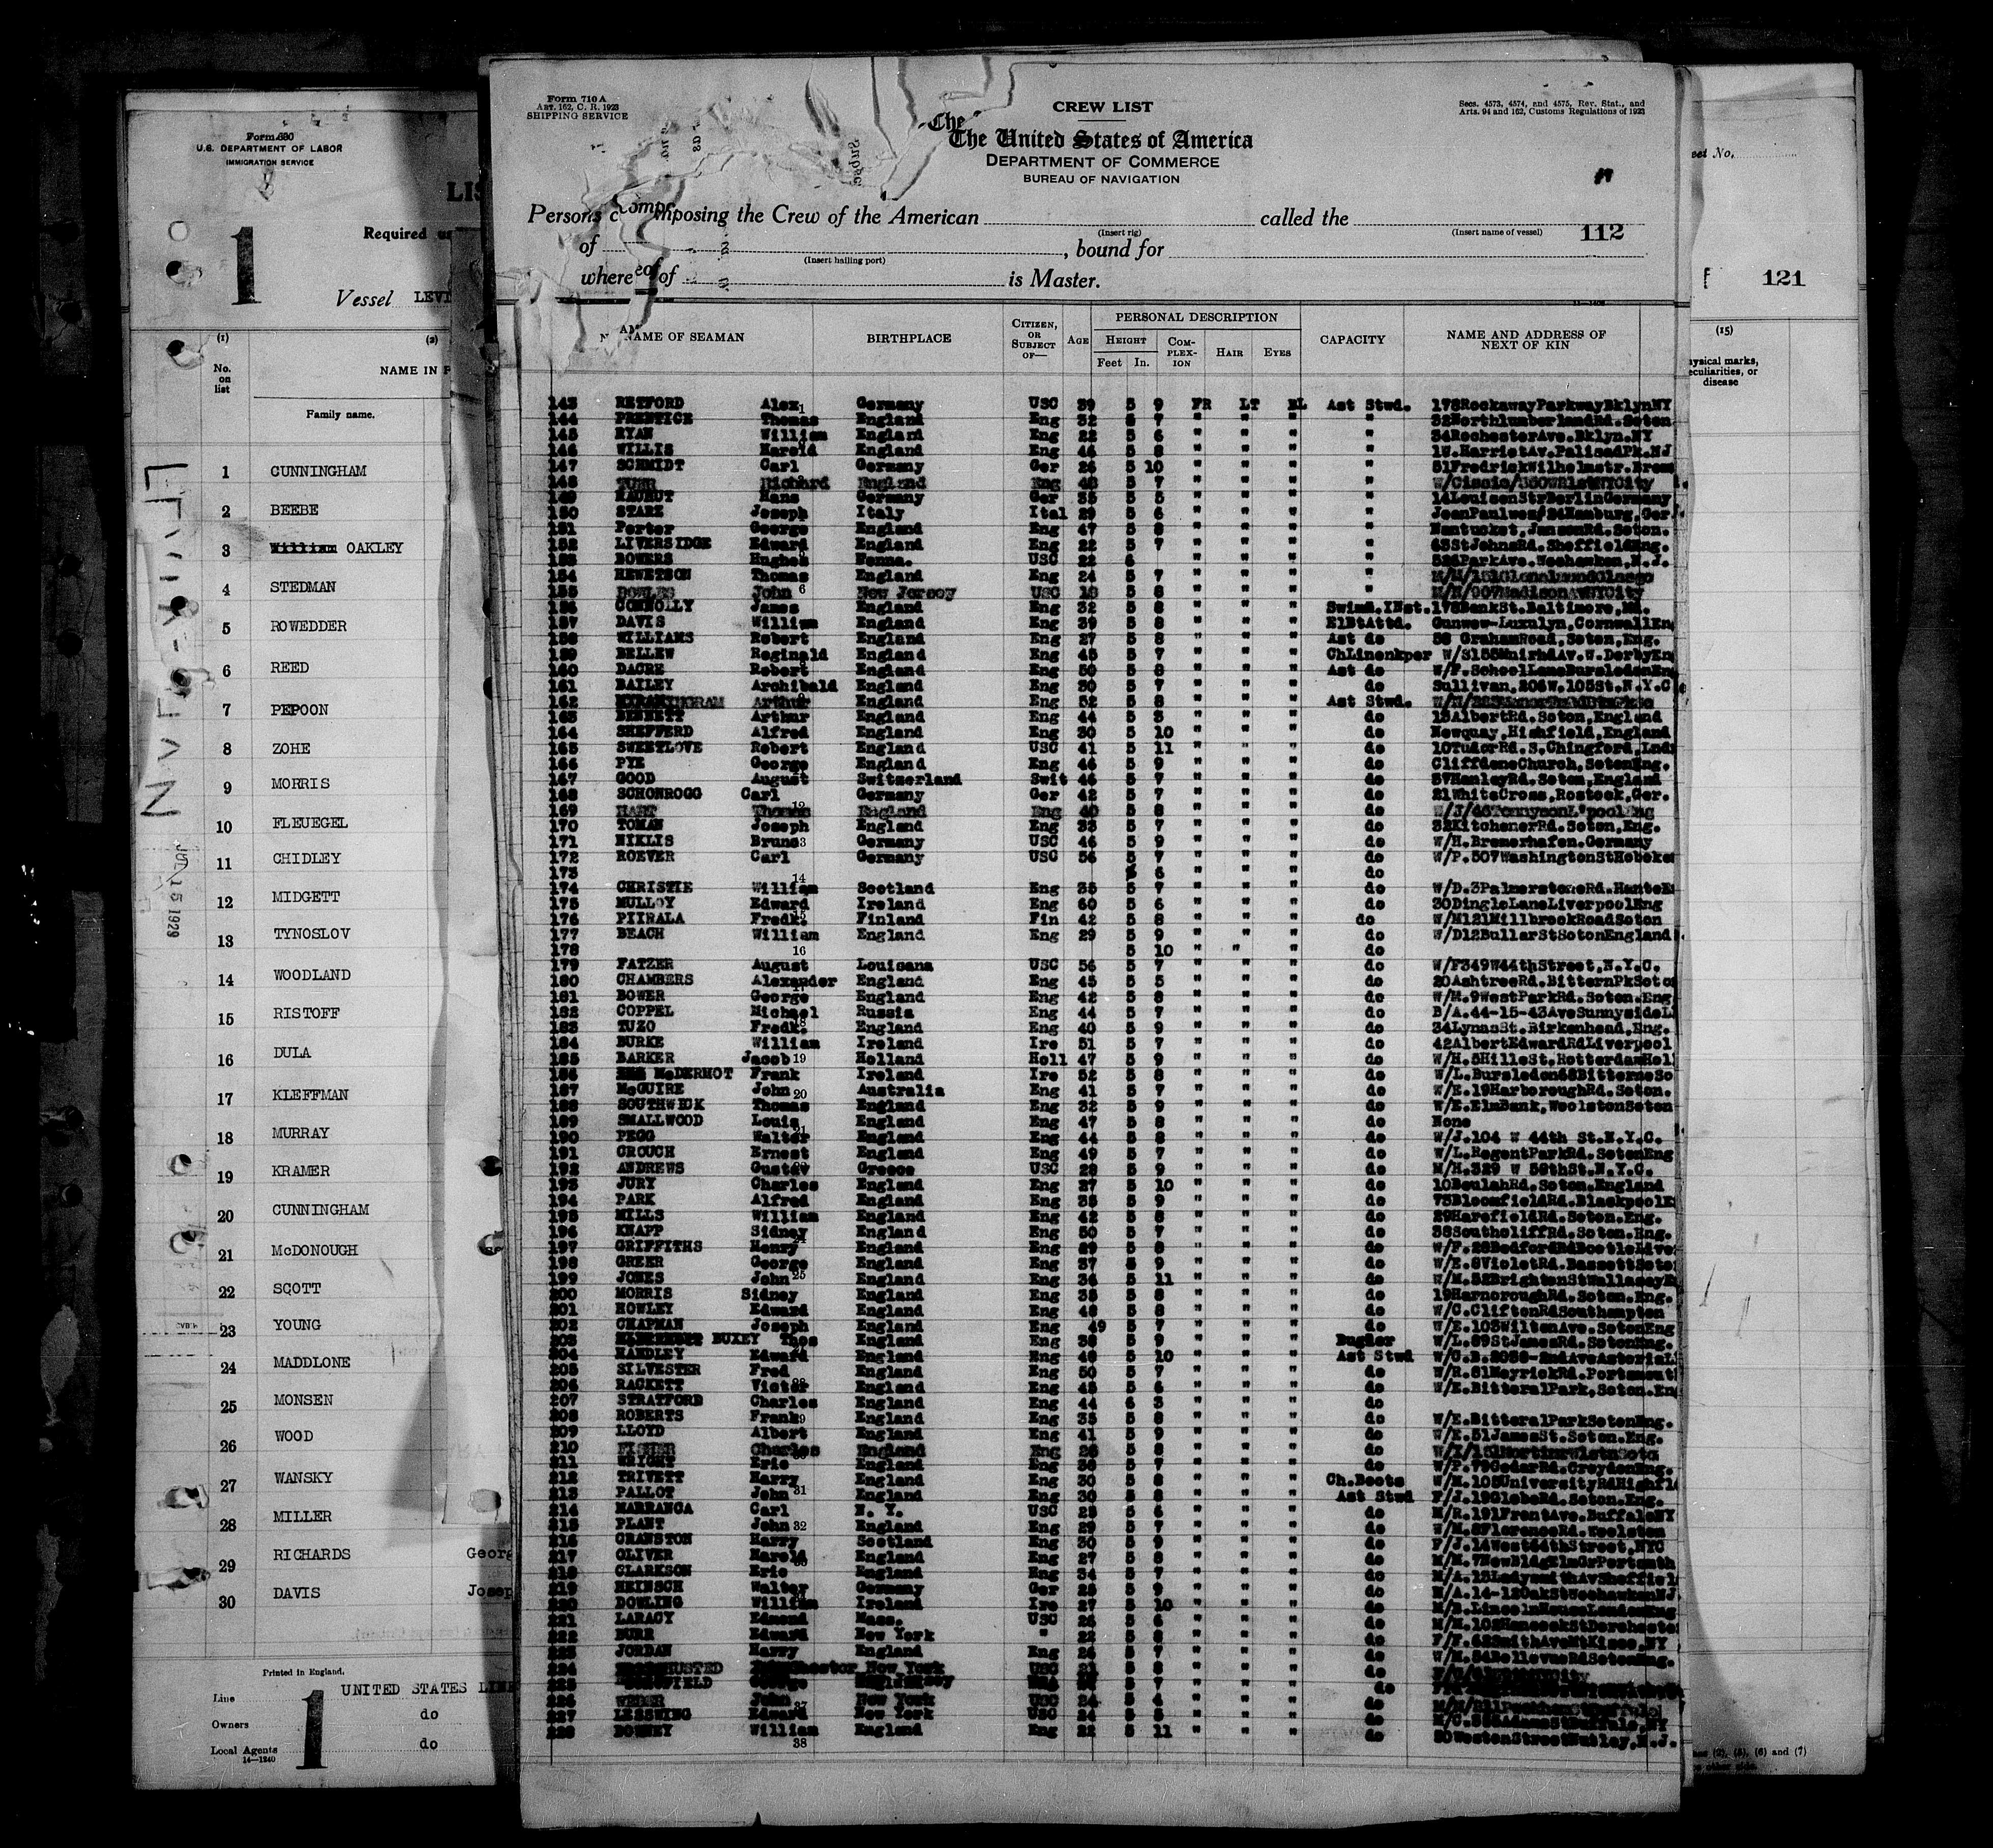 Form 680
U.S. DEPARTMENT OF LABOR
IMMIGRATION SERVICE
1
LIS
Required u
Vessel LEVI
(1) (2)
No. on list
NAME IN F
Family name.
1 CUNNINGHAM
2 BEEBE
3 William OAKLEY
4 STEDMAN
5 ROWEDDER
6 REED
7 PEPOON
8 ZOHE
9 MORRIS
10 FLEUEGEL
11 CHIDLEY
12 MIDGETT
13 TYNOSLOV
14 WOODLAND
15 RISTOFF
16 DULA
17 KLEFFMAN
18 MURRAY
19 KRAMER
20 CUNNINGHAM
21 McDONOUGH
22 SCOTT
23 YOUNG
24 MADDLONE
25 MONSEN
26 WOOD
27 WANSKY
28 MILLER
29 RICHARDS Georg
30 DAVIS Josep
Printed in England.
Line UNITED STATES LIN
Owners do
Local Agents do
14—1240
1
Form 710 A
Art. 162, C. R. 1923
SHIPPING SERVICE
CREW LIST
The
The United States of America
DEPARTMENT OF COMMERCE
BUREAU OF NAVIGATION
Secs. 4573, 4574, and 4575, Rev. Stat., and
Arts. 94 and 162, Customs Regulations of 1923
Persons composing the Crew of the American called the
(Insert rig) (Insert name of vessel) 112
of , bound for
(Insert hailing port)
whereof is Master.
NAME OF SEAMAN BIRTHPLACE CITIZEN, OR SUBJECT OF— AGE PERSONAL DESCRIPTION CAPACITY NAME AND ADDRESS OF NEXT OF KIN
HEIGHT Feet In. COMPLEXION HAIR EYES
143 RETFORD Alex Germany USC 39 5 9 FR LT BL Ast Stwd. 178RockawayParkwayBklynNY
144 PRENTICE Thomas England Eng 32 5 7 " " " " 32NorthlumberlandRd.Soton
145 RYAN William England Eng 22 5 6 " " " " 34RochesterAve.Bklyn.NY
146 WILLIS Harold England Eng 45 5 8 " " " " 1W.HarrietAv.PalisadPk.NJ
147 SCHMIDT Carl Germany Ger 26 5 10 " " " " 51FredrickWilhelmstr.Brem
148 Richard England Eng 40 5 7 " " " "
149 Hans Germany Ger 35 5 5 " " " " 14LouisenStrBerlinGermany
150 STARK Joseph Italy Ital 29 5 6 " " " "
151 Porter George England Eng 47 5 8 " " " " Nantucket, JansenRd.Soton.
152 LIVERSIDGE Edward England Eng 22 5 7 " " " " 65StJohnsRd.SheffieldEng.
153 BOWERS Hughes Penna. USC 22 6 " " " " 526ParkAve.Weehawken,N.J.
154 HEWETSON Thomas England Eng 24 5 7 " " " "
155 John New Jersey USC 19 5 8 " " " " M/H/907MadisonAvNYCity
156 CONNOLLY James England Eng 32 5 8 " " " Swimm.INst. 178BankSt.Baltimore,Md.
157 DAVIS William England Eng 39 5 8 " " " ElBtAttd. Gunwew-Luxulyn,CornwallEn
158 WILLIAMS Robert England Eng 27 5 8 " " " Ast do 58 GrahamRoad,Soton,Eng.
159 BELLEW Reginald England Eng 45 5 7 " " " ChLinenkper W/S155MuirhdAv.W.DerbyEn
160 DACRE Robert England Eng 50 5 8 " " " Ast do W/F.SchoolLaneBursledonEn
161 BAILEY Archibald England Eng 30 5 7 " " " do Sullivan,206W.105St.N.Y.C
162 Arthur England Eng 52 5 8 " " " Ast Stwd.
163 BENNETT Arthur England Eng 44 5 3 " " " do 15AlbertRd.Soton,England
164 SHEFFERD Alfred England Eng 30 5 10 " " " do Newquay,Highfield,England
165 SWEETLOVE Robert England USC 41 5 11 " " " do 10TudorRd.S.Chingford,Lnd
166 PYE George England Eng 44 5 9 " " " do CliffdeneChurch,SotonEng.
167 GOOD August Switzerland Swit 46 5 7 " " " do 57HanleyRd.Soton,England
168 SCHONROGG Carl Germany Ger 42 5 7 " " " do 21WhiteCross,Rostock,Ger.
169 HART Thomas England Eng 40 5 8 " " " do
170 TOMAN Joseph England Eng 33 5 7 " " " do 32KitchenerRd.Soton,Eng.
171 NIKLIS Bruno Germany USC 46 5 9 " " " do W/H.Bremerhafen.Germany
172 ROEVER Carl Germany USC 56 5 7 " " " do W/P.507WashingtonStHoboke
173 5 6 " " " do
174 CHRISTIE William Scotland Eng 35 5 7 " " " do W/D.3PalmerstoneRd.HantsE
175 MULLOY Edward Ireland Eng 60 5 6 " " " do 30DingleLaneLiverpoolEng
176 PIIRALA Fredk. Finland Fin 42 5 8 " " " do W/M121MillbrookRoadSoton
177 BEACH William England Eng 29 5 9 " " " do W/D12BullarStSotonEngland
178 5 10 " " " do
179 FATZER August Louisana USC 56 5 7 " " " do W/F349W44thStreet,N.Y.C.
180 CHAMBERS Alexander England Eng 45 5 5 " " " do 20AshtreeRd.BitternPkSoto
181 BOWER George England Eng 42 5 8 " " " do W/M.9WestParkRd.Soton.Eng
182 COPPEL Michael Russia Eng 44 5 7 " " " do B/A.44-15-43AveSunnysideL
183 TUZO Fredk. England Eng 40 5 9 " " " do 34LynasSt.Birkenhead,Eng.
184 BURKE William Ireland Ire 51 5 7 " " " do 42AlbertEdwardRdLiverpool
185 BARKER Jacob Holland Holl 47 5 9 " " " do W/H.5HilleSt,RotterdamHol
186 McDERMOT Frank Ireland Ire 52 5 8 " " " do W/L.Bursledon68BitterneSo
187 McGUIRE John Australia Eng 41 5 7 " " " do W/E.19HarboroughRd.Soton.
188 SOUTHWICK Thomas England Eng 32 5 9 " " " do W/E.ElmBank,WoolstonSoton
189 SMALLWOOD Louis England Eng 47 5 8 " " " do None
190 PEGG Walter England Eng 44 5 8 " " " do W/J.104 W 44th St.N.Y.C.
191 CROUCH Ernest England Eng 49 5 7 " " " do W/L.RegentParkRd.SotonEng
192 ANDREWS Gustav Greece USC 28 5 9 " " " do M/H.329 W 59thSt.N.Y.C.
193 JURY Charles England Eng 27 5 10 " " " do 10BeulahRd.Soton.England
194 PARK Alfred England Eng 35 5 9 " " " do 75BloomfieldRd.BlackpoolE
195 MILLS William England Eng 42 5 8 " " " do 29HarefieldRd.Soton.Eng.
196 KNAPP Sidney England Eng 50 5 7 " " " do 38SouthcliffRd.Soton.Eng.
197 GRIFFITHS Henry England Eng 29 5 8 " " " do W/F.28BedfordRdBootleLive
198 GREER George England Eng 37 5 9 " " " do W/E.8VioletRd.BassettSoto
199 JONES John England Eng 34 5 11 " " " do W/M.52BrightonStWallaseyE
200 MORRIS Sidney England Eng 35 5 8 " " " do 19HarnoroughRd.Soton.Eng.
201 HOWLEY Edward England Eng 48 5 8 " " " do W/C.CliftonRdSouthampton
202 CHAPMAN Joseph England Eng 49 5 7 " " " do W/E.103WiltonAve.SotonEng
203 BUXEY Thos England Eng 38 5 9 " " " Bugler W/L.89StJamesRd.SotonEng.
204 HANDLEY Edward England Eng 48 5 10 " " " Ast Stwd W/C.B.2058-2ndAveAstoriaL
205 SILVESTER Fred England Eng 50 5 7 " " " do W/H.81MeyrickRd.Portsmout
206 RACKETT Victor England Eng 45 5 6 " " " do W/E.BitteralPark,Soton.En
207 STRATFORD Charles England Eng 44 6 3 " " " do
208 ROBERTS Frank England Eng 35 5 8 " " " do W/E.BitteralParkSotonEng.
209 LLOYD Albert England Eng 41 5 9 " " " do W/E.51JamesSt.Soton.Eng.
210 FISHER Charles England Eng 26 5 8 " " " do
211 WRIGHT Eric England Eng 36 5 7 " " " do W/P.79CedarRd.CroydonEng.
212 TRIVETT Harry England Eng 30 5 8 " " " Ch.Boots W/H.105UniversityRdHighfl
213 PALLOT John England Eng 30 5 8 " " " Ast Stwd F/J.19GlebeRd.Soton.Eng.
214 MARRANCA Carl N. Y. USC 23 5 6 " " " do M/R.191FrontAve.BuffaloNY
215 PLANT John England Eng 29 5 7 " " " do W/M.6FlorenceRd.Woolston
216 CRANSTON Harry Scotland Eng 30 5 9 " " " do F/J.14West64thStreet,NYC
217 OLIVER Harold England Eng 27 5 8 " " " do
218 CLARKSON Eric England Eng 34 5 7 " " " do M/A.15LadysmithAvSheffiel
219 HEINSCH Walter Germany Ger 25 5 9 " " " do M/A.14-12OakStWeehawkenNJ
220 DOWLING William Ireland Ire 27 5 10 " " " do M/B.LincolnHouseLondonEng
221 LARACY Edmond Mass. USC 26 5 6 " " " do M/M.109HancockStDorcheste
222 BURR Edward New York " 22 5 8 " " " do F/F.43SmithAveMtKisco,NY
223 JORDAN Harry England Eng 26 5 7 " " " do W/M.54BellevueRdSotonEng.
224 New York USC 21 5 8 " " " do
225 George 5 7 " " " do
226 WEBER John New York USC 24 5 4 " " " do
227 LESSWING Edward New York USC 24 5 5 " " " do
228 DOWNEY William England Eng 22 5 11 " " " do 80WestonStreetNutley,N.J.
121
(15)
ysical marks,
eculiarities, or
disease
(2), (5), (6) and (7)
JUL 15 1929